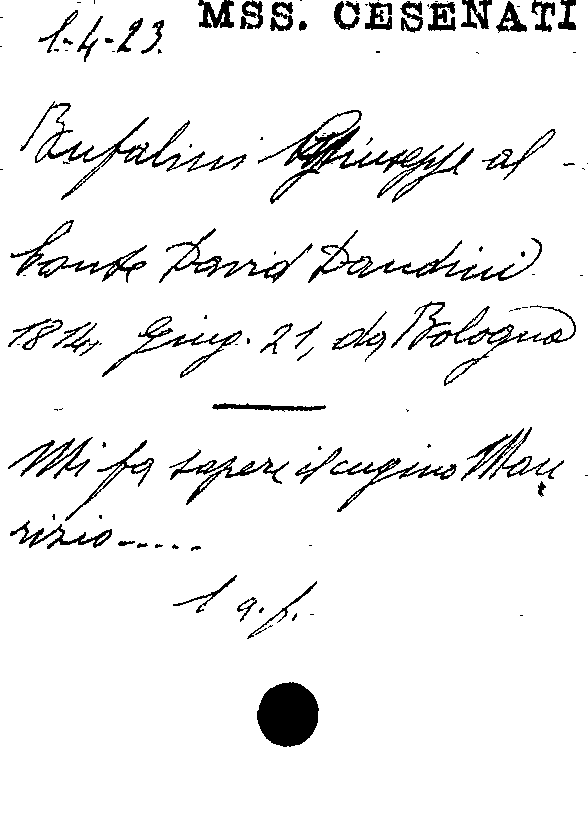 MSS. CESENATI
1-4-23.
Bufalini Giuseppe al
Conte David Dandini
1814, Giug. 21, da Bologna
Mi fa sapere il cugino Mau
rizio.....
1 a.f.